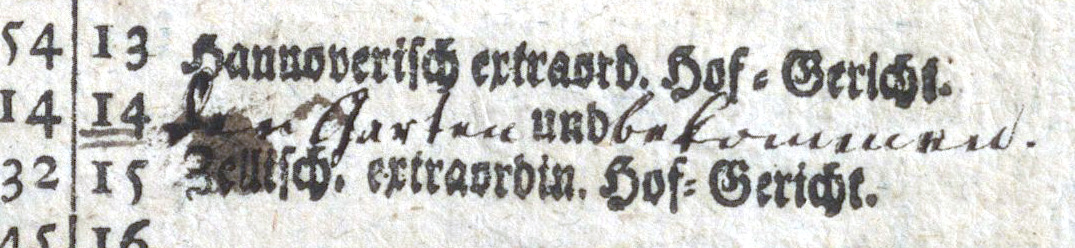 54 13 Hannoverisch extraord. Hof=Gericht.
14 14 den Garten und bekommen.
32 15 Zellisch. extraordin. Hof=Gericht.
45 16